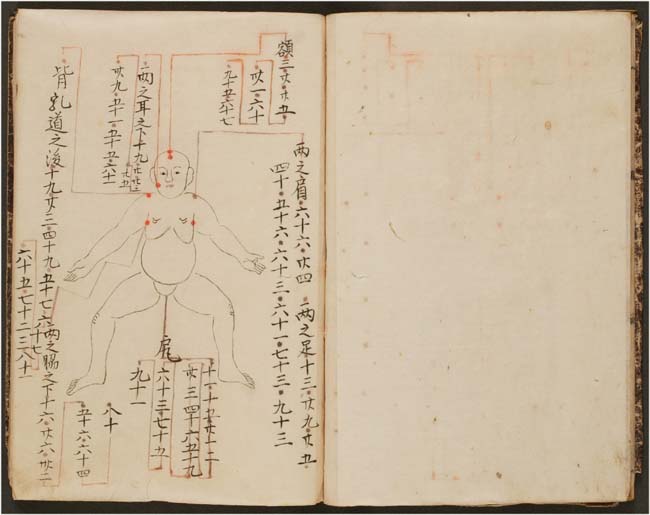 額三•廿•廿五
廿一•六十
九十五•六十七
両之肩•六十六•廿四
四十•五十六•六十三•六十一•七十三•九十三
両之足十三•廿九•廿五
両之耳之下十九
廿九•五十一•五十五•六十一
尾
十一•十五•廿•十二
廿三四十六五十九
六十三•七十五
九十一
背乳道之後十九廿三•四十九•五十七•六十七
両之脇之下十六•廿六•廿二
八十
五十六六十四
六十五•七十二•三八十一